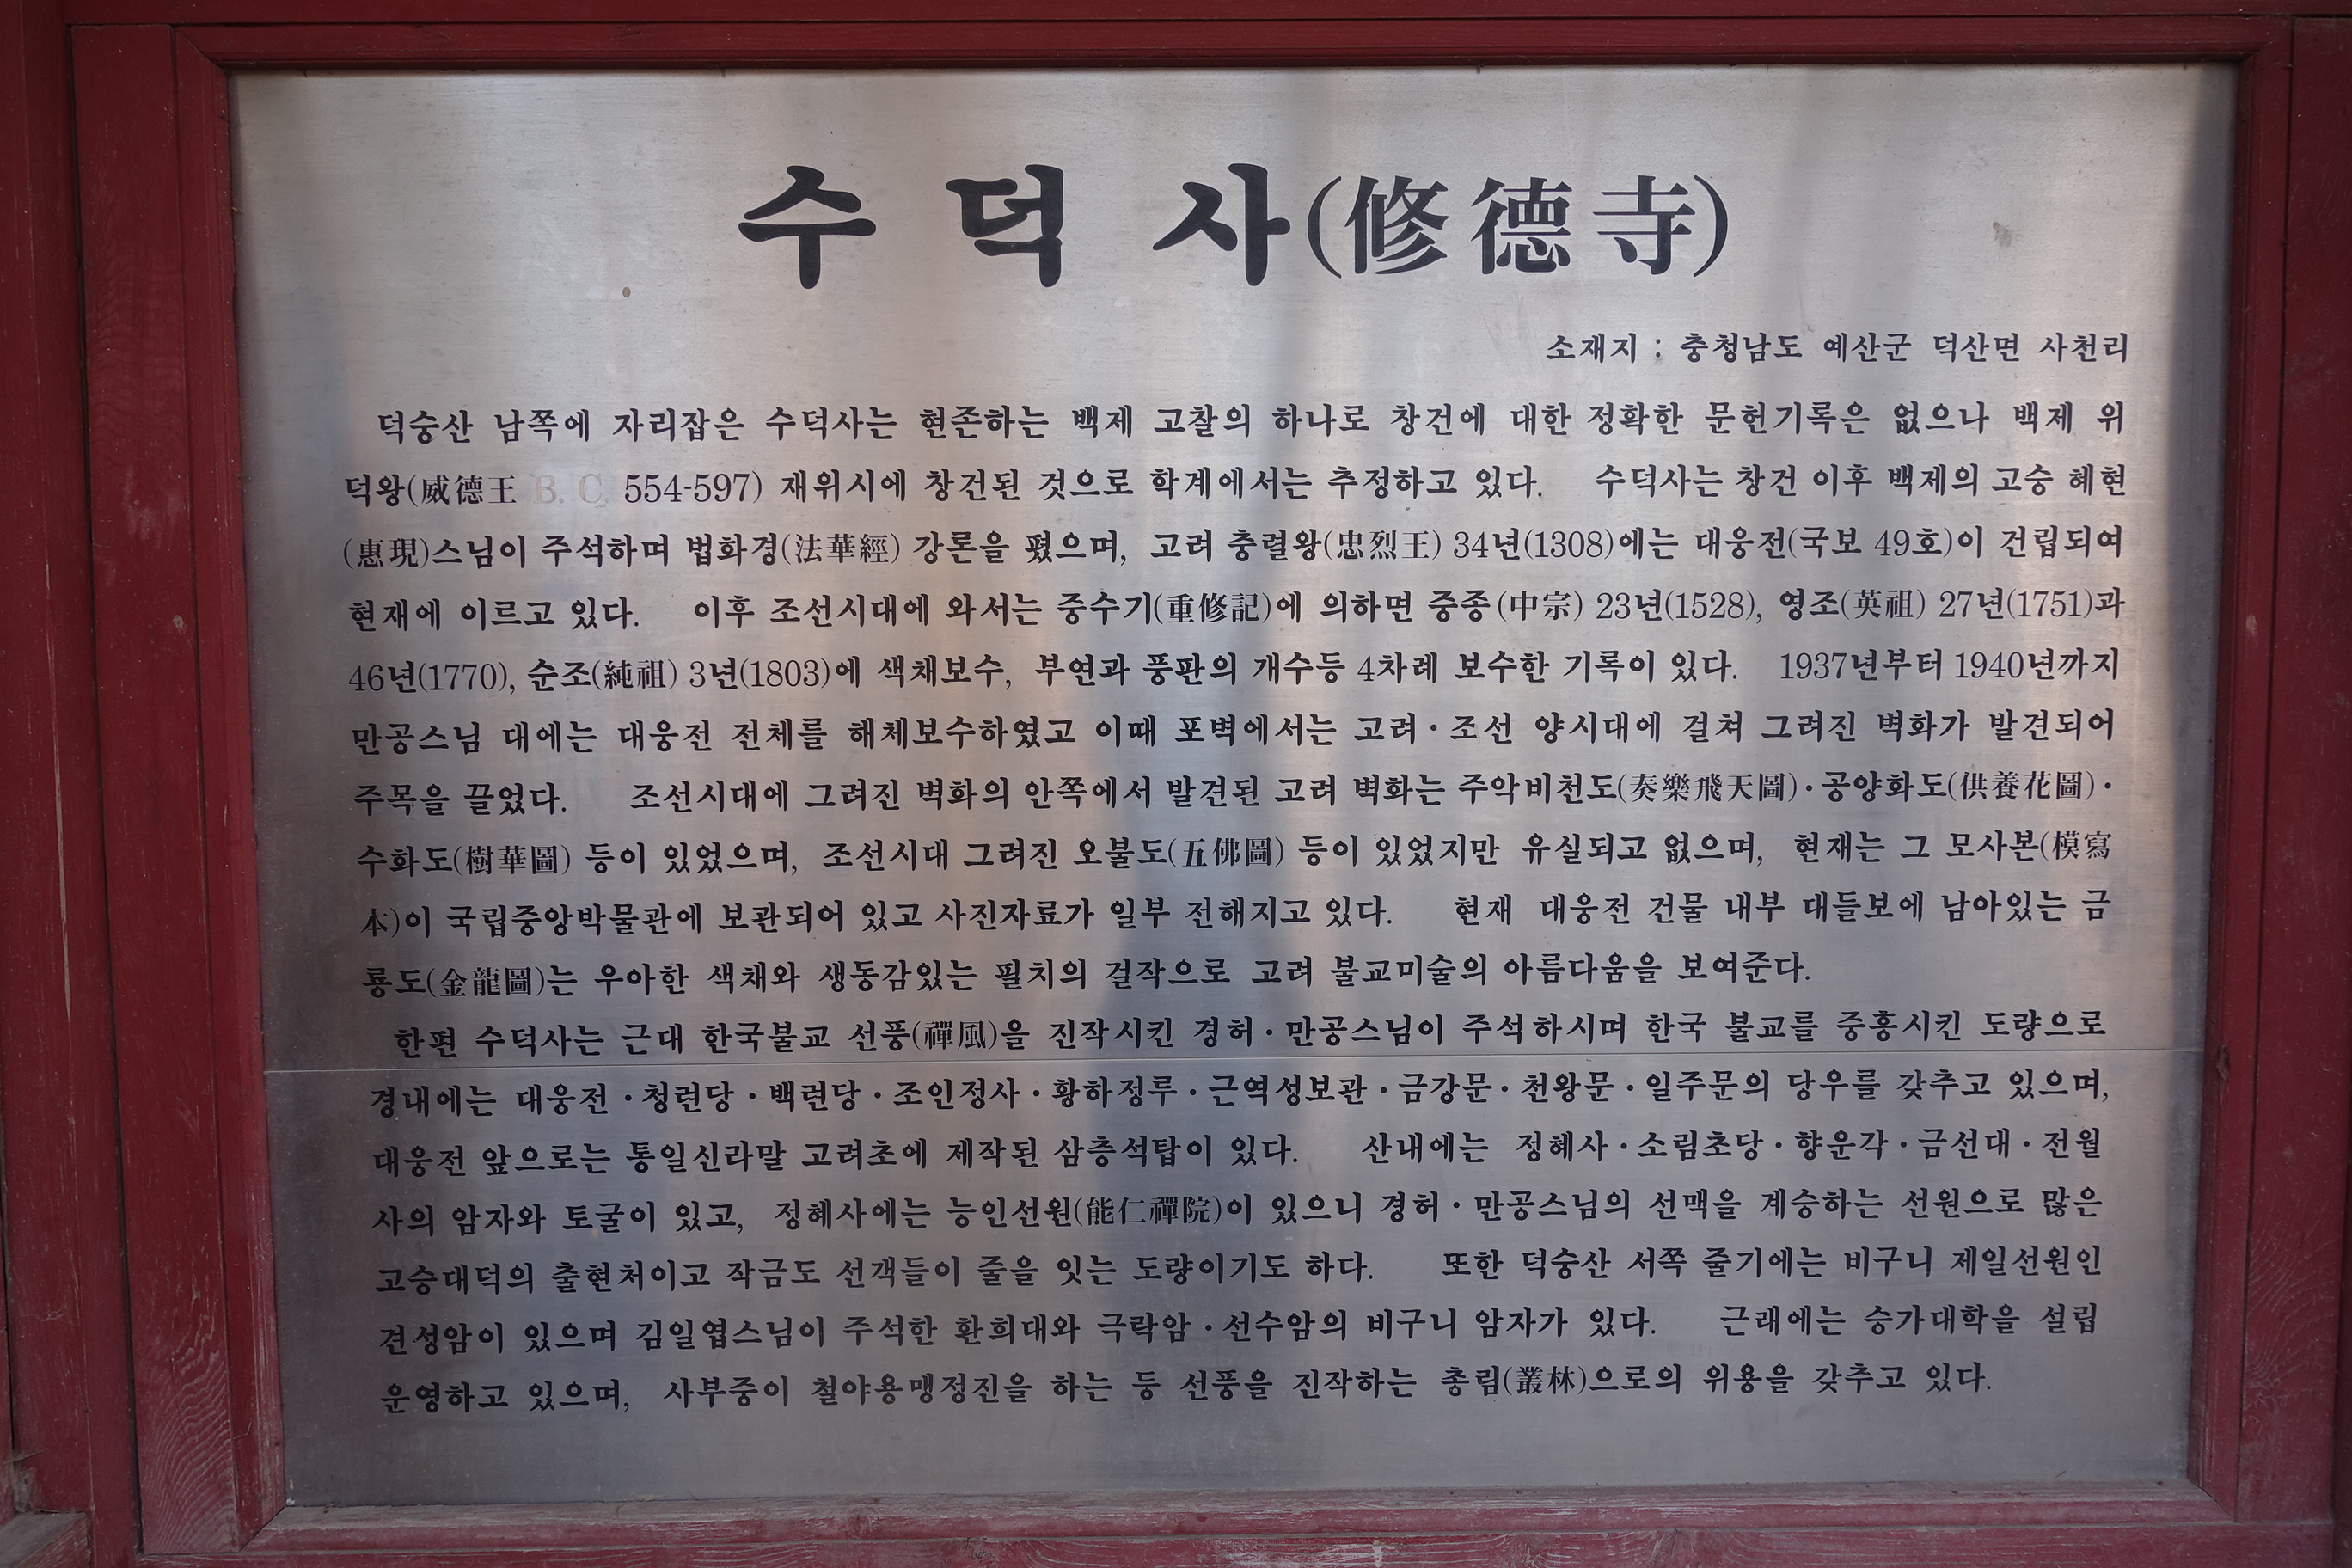 수덕사(修德寺)
소재지 : 충청남도 예산군 덕산면 사천리
덕숭산 남쪽에 자리잡은 수덕사는 현존하는 백제 고찰의 하나로 창건에 대한 정확한 문헌기록은 없으나 백제 위
덕왕(威德王 B. C. 554-597) 재위시에 창건된 것으로 학계에서는 추정하고 있다. 수덕사는 창건 이후 백제의 고승 혜현
(惠現)스님이 주석하며 법화경(法華經) 강론을 폈으며, 고려 충렬왕(忠烈王) 34년(1308)에는 대웅전(국보 49호)이 건립되여
현재에 이르고 있다. 이후 조선시대에 와서는 중수기(重修記)에 의하면 중종(中宗) 23년(1528), 영조(英祖) 27년(1751)과
46년(1770), 순조(純祖) 3년(1803)에 색채보수, 부연과 풍판의 개수등 4차례 보수한 기록이 있다. 1937년부터 1940년까지
만공스님 대에는 대웅전 전체를 해체보수하였고 이때 포벽에서는 고려·조선 양시대에 걸쳐 그려진 벽화가 발견되어
주목을 끌었다. 조선시대에 그려진 벽화의 안쪽에서 발견된 고려 벽화는 주악비천도(奏樂飛天圖)·공양화도(供養花圖)·
수화도(樹華圖) 등이 있었으며, 조선시대 그려진 오불도(五佛圖) 등이 있었지만 유실되고 없으며, 현재는 그 모사본(模寫
本)이 국립중앙박물관에 보관되어 있고 사진자료가 일부 전해지고 있다. 현재 대웅전 건물 내부 대들보에 남아있는 금
룡도(金龍圖)는 우아한 색채와 생동감있는 필치의 걸작으로 고려 불교미술의 아름다움을 보여준다.
한편 수덕사는 근대 한국불교 선풍(禪風)을 진작시킨 경허·만공스님이 주석하시며 한국 불교를 중흥시킨 도량으로
경내에는 대웅전·청련당·백련당·조인정사·황하정루·근역성보관·금강문·천왕문·일주문의 당우를 갖추고 있으며,
대웅전 앞으로는 통일신라말 고려초에 제작된 삼층석탑이 있다. 산내에는 정혜사·소림초당·향운각·금선대·전월
사의 암자와 토굴이 있고, 정혜사에는 능인선원(能仁禪院)이 있으니 경허·만공스님의 선맥을 계승하는 선원으로 많은
고승대덕의 출현처이고 작금도 선객들이 줄을 잇는 도량이기도 하다. 또한 덕숭산 서쪽 줄기에는 비구니 제일선원인
견성암이 있으며 김일엽스님이 주석한 환희대와 극락암·선수암의 비구니 암자가 있다. 근래에는 승가대학을 설립
운영하고 있으며, 사부중이 철야용맹정진을 하는 등 선풍을 진작하는 총림(叢林)으로의 위용을 갖추고 있다.